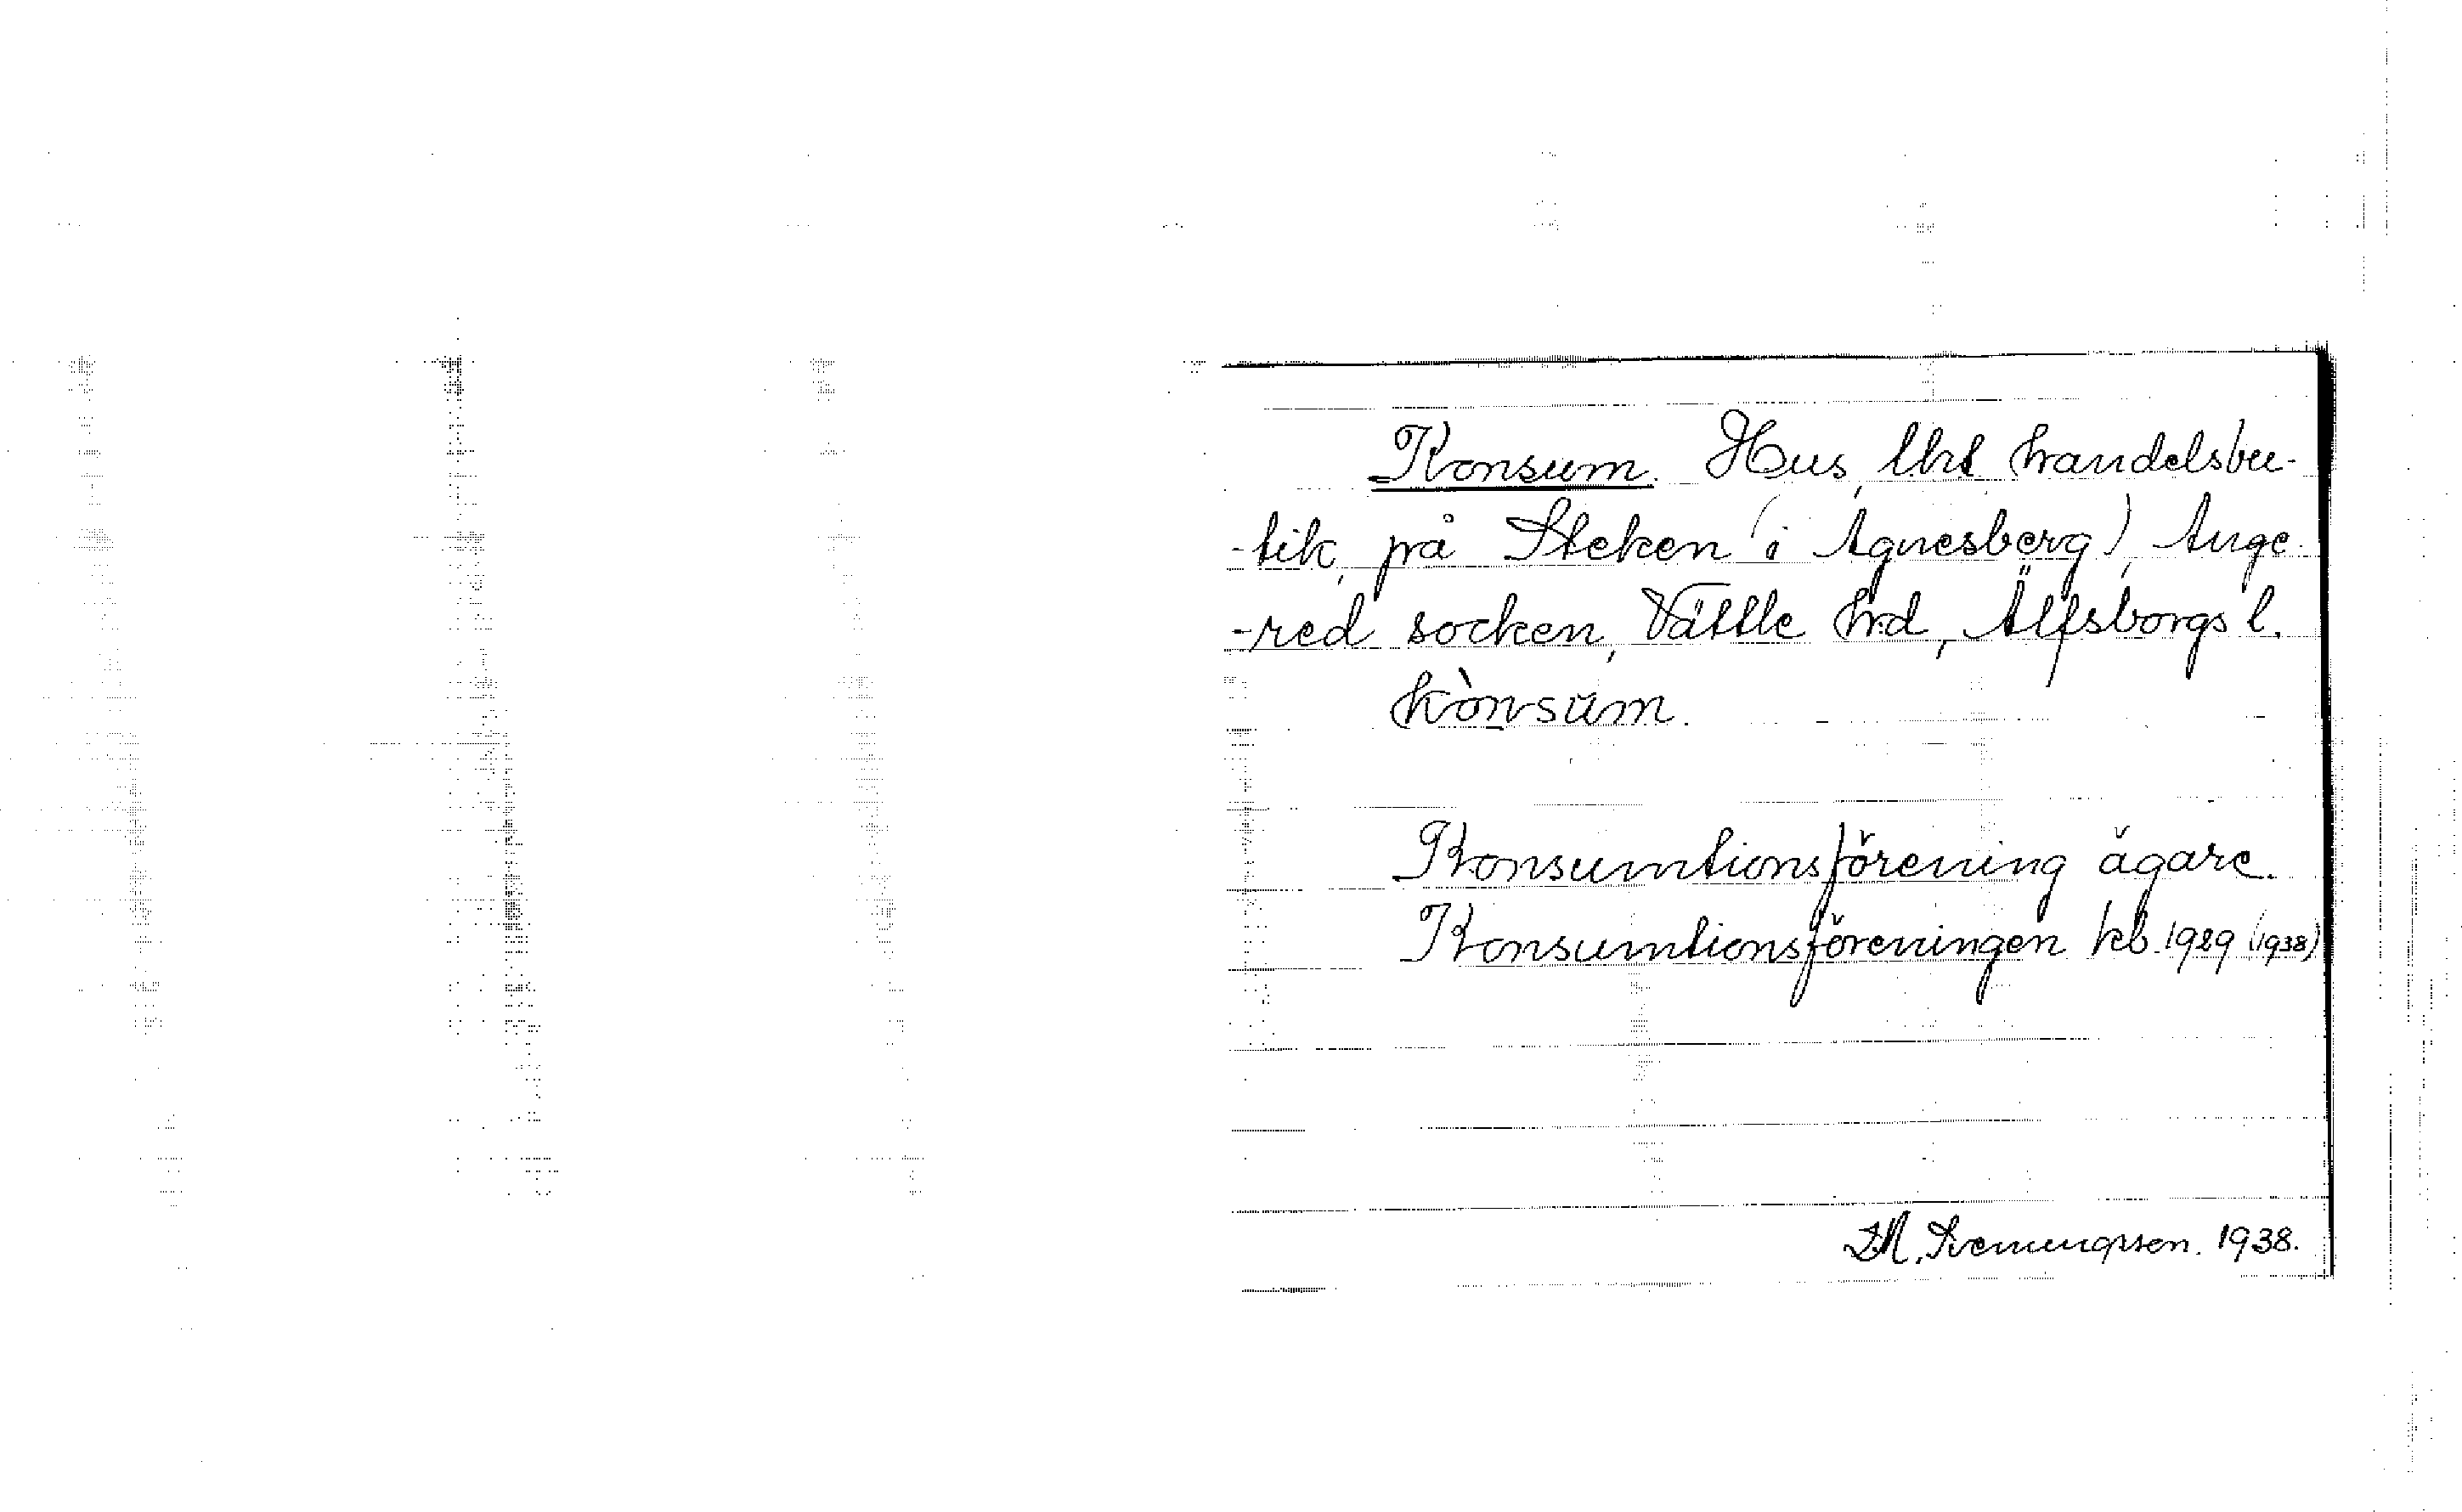 Konsum. Hus, lht handelsbu-
-tik, på Steken (i Agnesberg), Ange-
-red socken, Vättle hrd, Älfsborgs l.
kònsùm.
Konsumtionsförening ägare.
Konsumtionsföreningen kb. 1929 (1938)
Svenungsson. 1938.